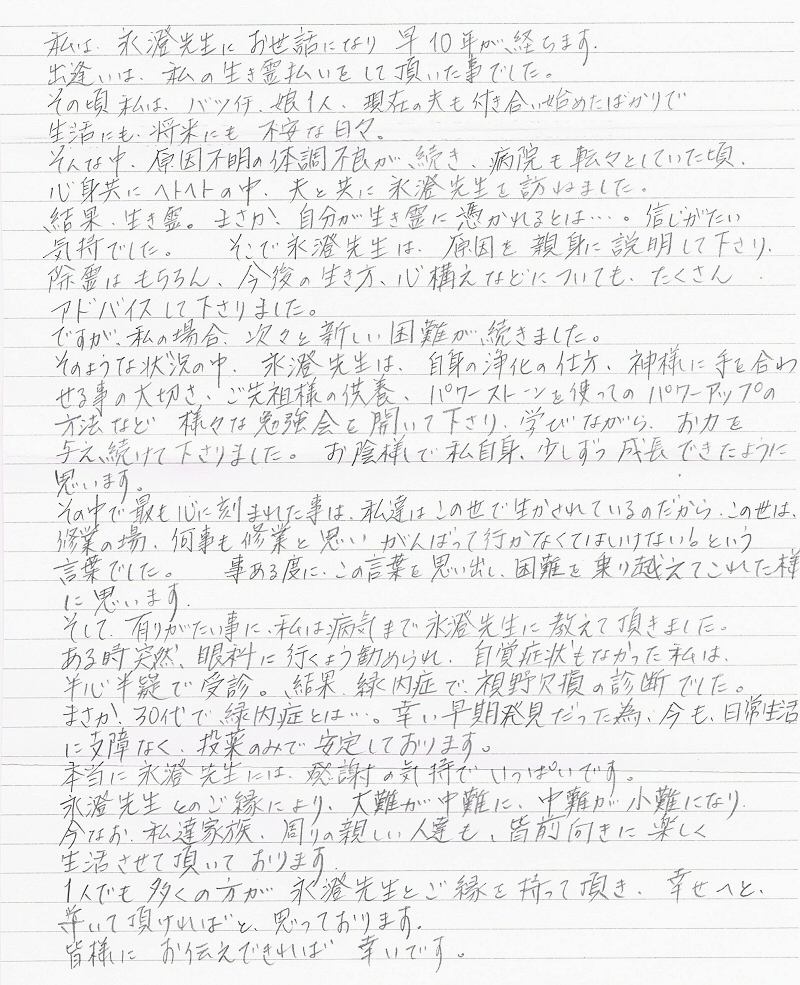 私は、永澄先生に お世話になり 早10年が、経ちます.
出逢いは、私の生き霊払いをして頂いた事でした。
その頃私は、バツイチ、娘1人、現在の夫も付き合い始めたばかりで
生活にも、将来にも 不安な日々。
そんな中、原因不明の体調不良が、続き、病院も転々としていた頃、
心身共にヘトヘトの中、夫と共に永澄先生を訪ねました。
結果、生き霊。まさか!自分が生き霊に憑かれるとは…。信じがたい
気持でした。 そこで永澄先生は、原因を親身に説明して下さり、
除霊はもちろん、今後の生き方、心構えなどについても、たくさん
アドバイスして下さりました。
ですが、私の場合、次々と新しい困難が、続きました。
そのような状況の中、永澄先生は、自身の浄化の仕方、神様に手を合わ
せる事の大切さ、ご先祖様の供養、パワーストーンを使ってのパワーアップの
方法など 様々な勉強会を開いて下さり、学びながら、お力を
与え、続けて下さりました。 お陰様で私自身、少しずつ成長できたように
思います。
その中で最も心に刻まれた事は、私達はこの世で生かされているのだから、この世は、
修業の場、何事も修業と思い がんばって行かなくてはいけない!という
言葉でした。 事ある度に、この言葉を思い出し、困難を乗り越えてこれた様
に思います.
そして、有りがたい事に、私は病気まで永澄先生に教えて頂きました。
ある時突然、眼科に行くよう勧められ、自覚症状もなかった私は、
半心半疑で受診。結果、緑内症で、視野欠損の診断でした。
まさか!30代で緑内症とは…。幸い早期発見だった為、今も、日常生活
に支障なく、投薬のみで安定しております。
本当に永澄先生には、感謝の気持でいっぱいです。
永澄先生とのご縁により、大難が中難に、中難が小難になり
今なお、私達家族、周りの親しい人達も、皆前向きに楽しく
生活させて頂いて おります.
1人でも多くの方が 永澄先生とご縁を持って頂き、幸せへと、
導いて頂ければと、思っております.
皆様に お伝えできれば 幸いです。